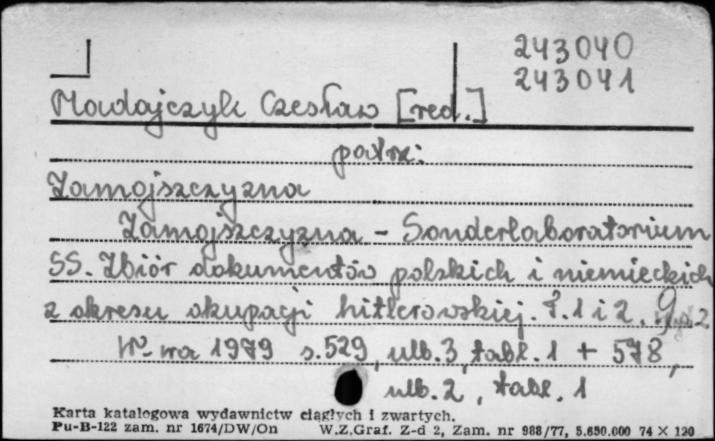 243040
243041
Madajczyk Czesław [red.]
patrz:
Zamojszczyzna
Zamojszczyzna - Sonderlaboratorium
SS. Zbiór dokumentów polskich i niemieckich
z okresu okupacji hitlerowskiej. T. 1 i 2.
W-wa 1979 s. 529, ulb. 3, tabl. 1 + 578,
ulb. 2, tabl. 1
Karta katalogowa wydawnictw ciągłych i zwartych.
Pu-B-122 zam. nr 1674/DW/On W.Z.Graf. Z-d 2, Zam. nr 988/77, 5.650.000 74 X 120